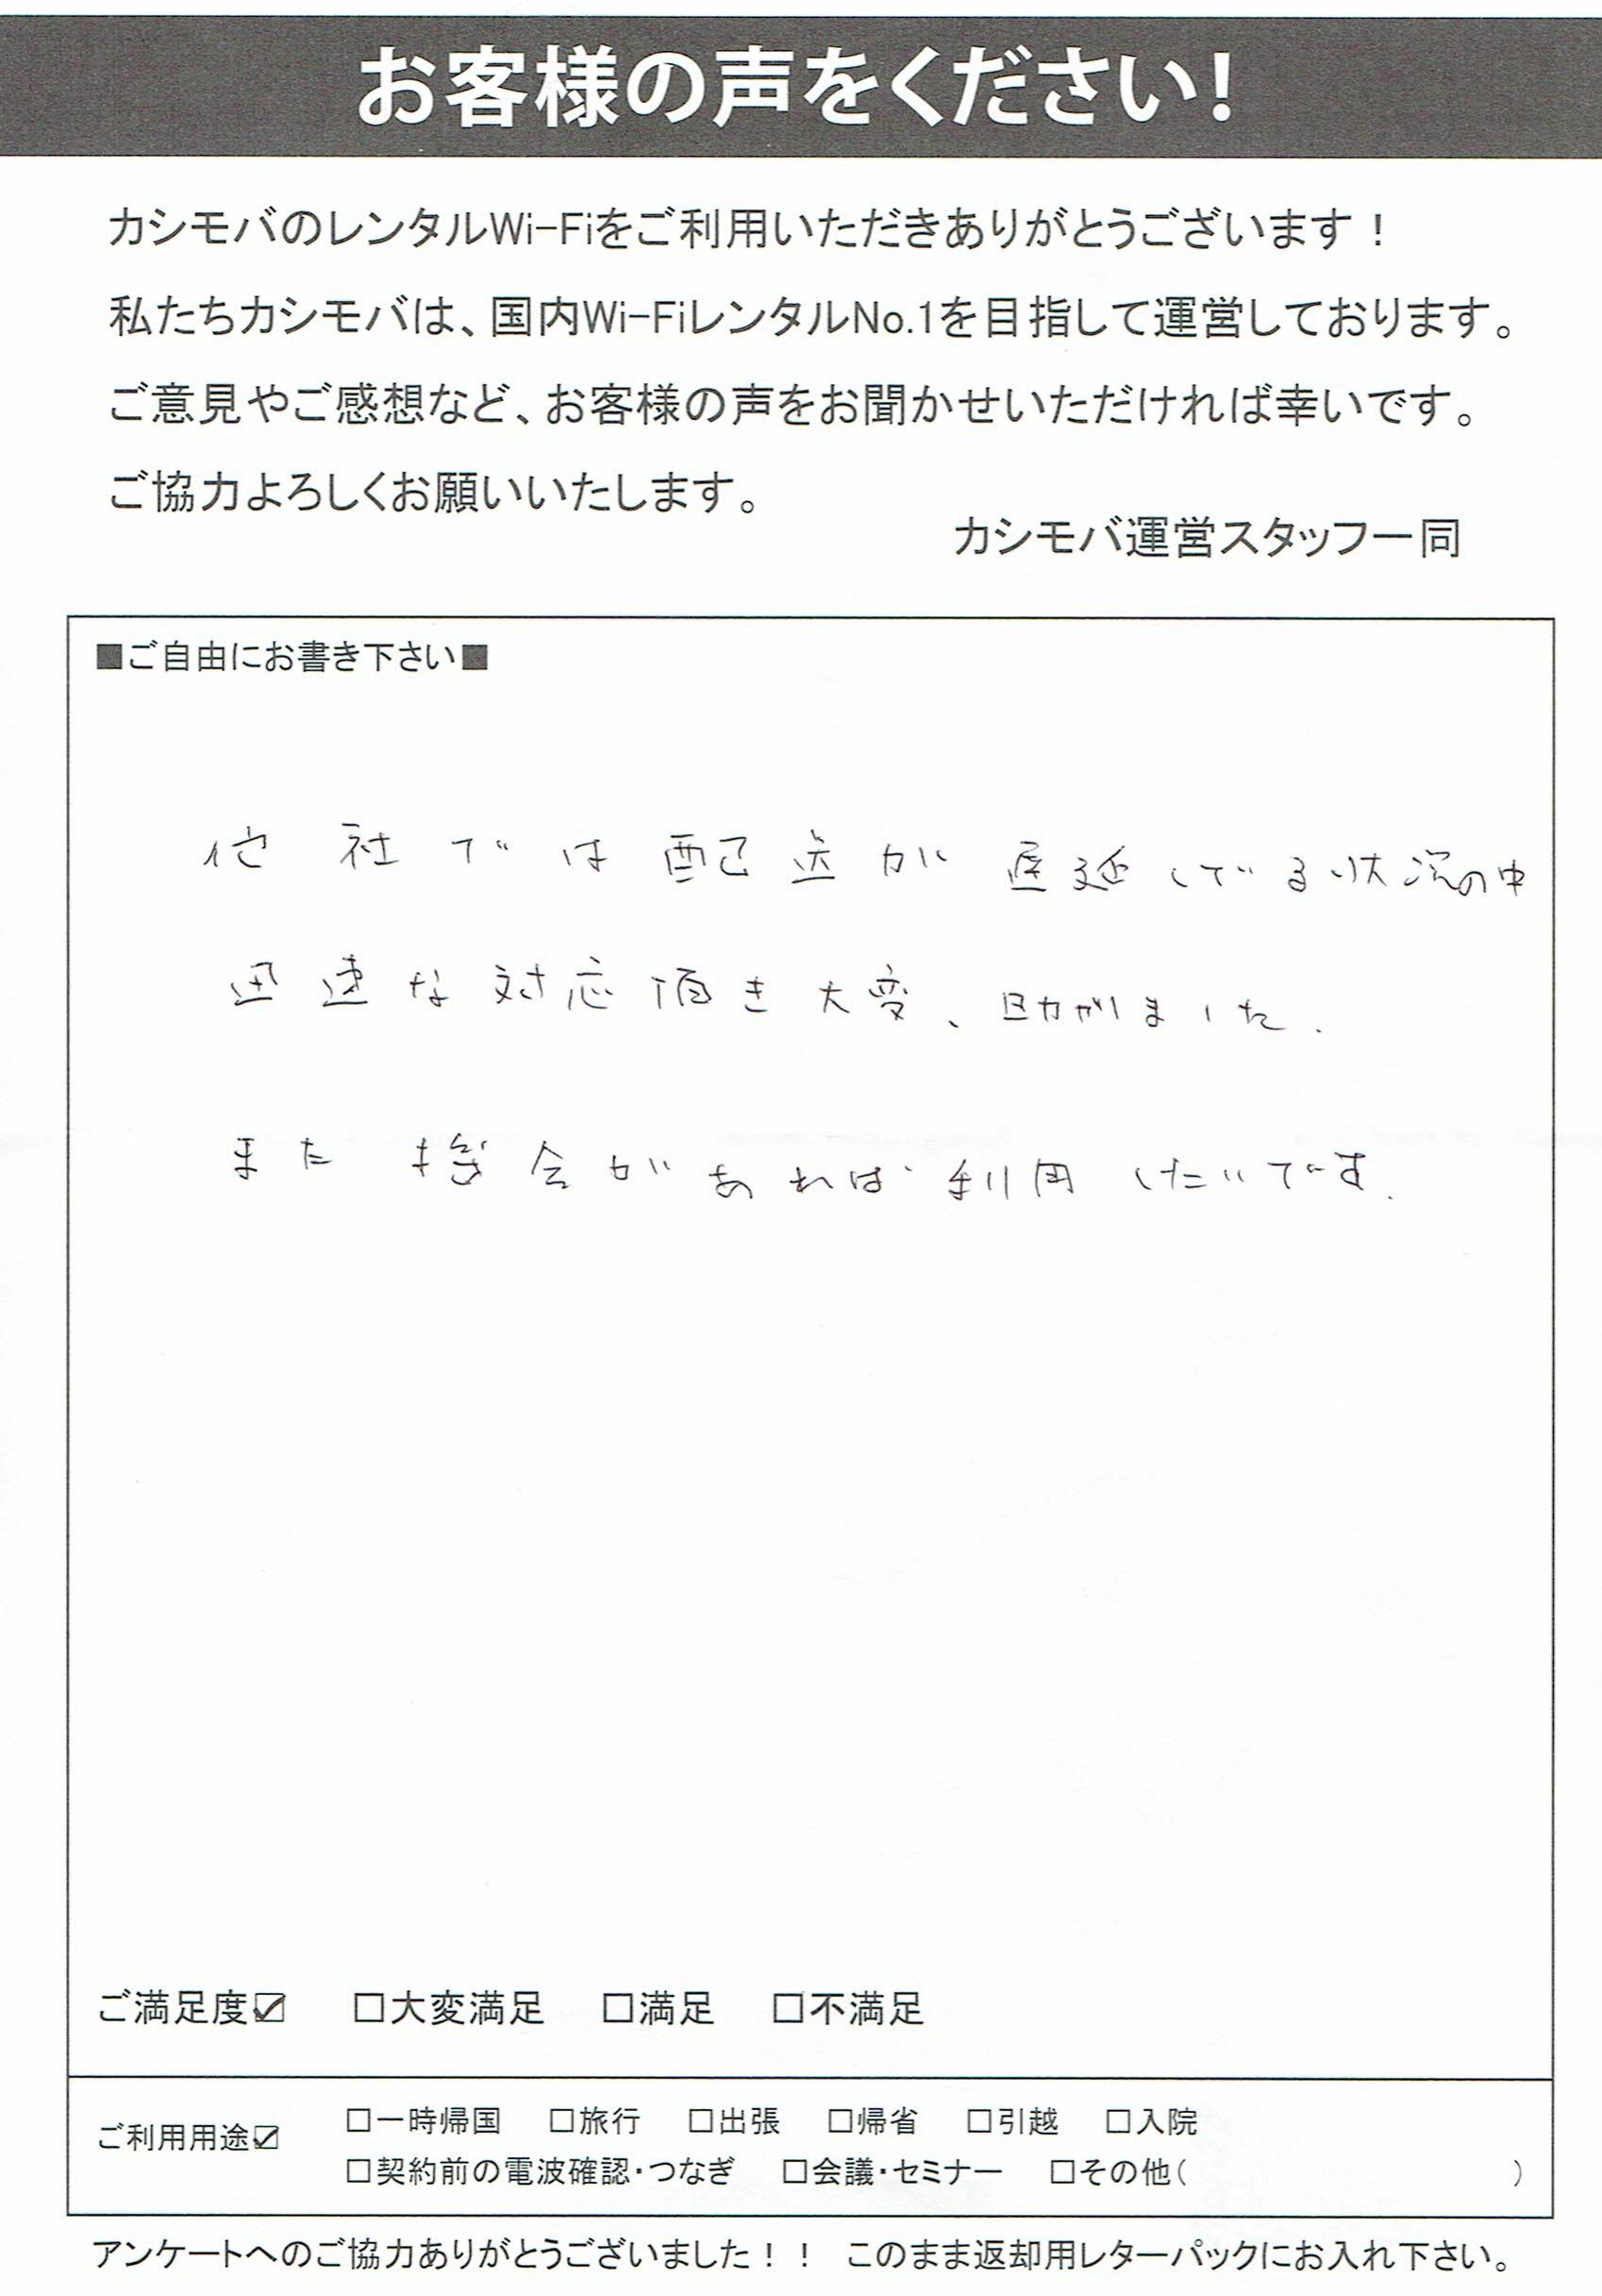 お客様の声をください!
カシモバのレンタルWi-Fiをご利用いただきありがとうございます！
私たちカシモバは、国内Wi-FiレンタルNo.1を目指して運営しております。
ご意見やご感想など、お客様の声をお聞かせいただければ幸いです。
ご協力よろしくお願いいたします。
カシモバ運営スタッフ一同
■ご自由にお書き下さい■
他社では配送が遅延してる状況の中
迅速な対応頂き大変、助かりました.
また機会があれば利用したいです.
ご満足度☑ □大変満足 □満足 □不満足
ご利用用途☑ □一時帰国 □旅行 □出張 □帰省 □引越 □入院
□契約前の電波確認・つなぎ □会議・セミナー □その他( )
アンケートへのご協力ありがとうございました！！ このまま返却用レターパックにお入れ下さい。